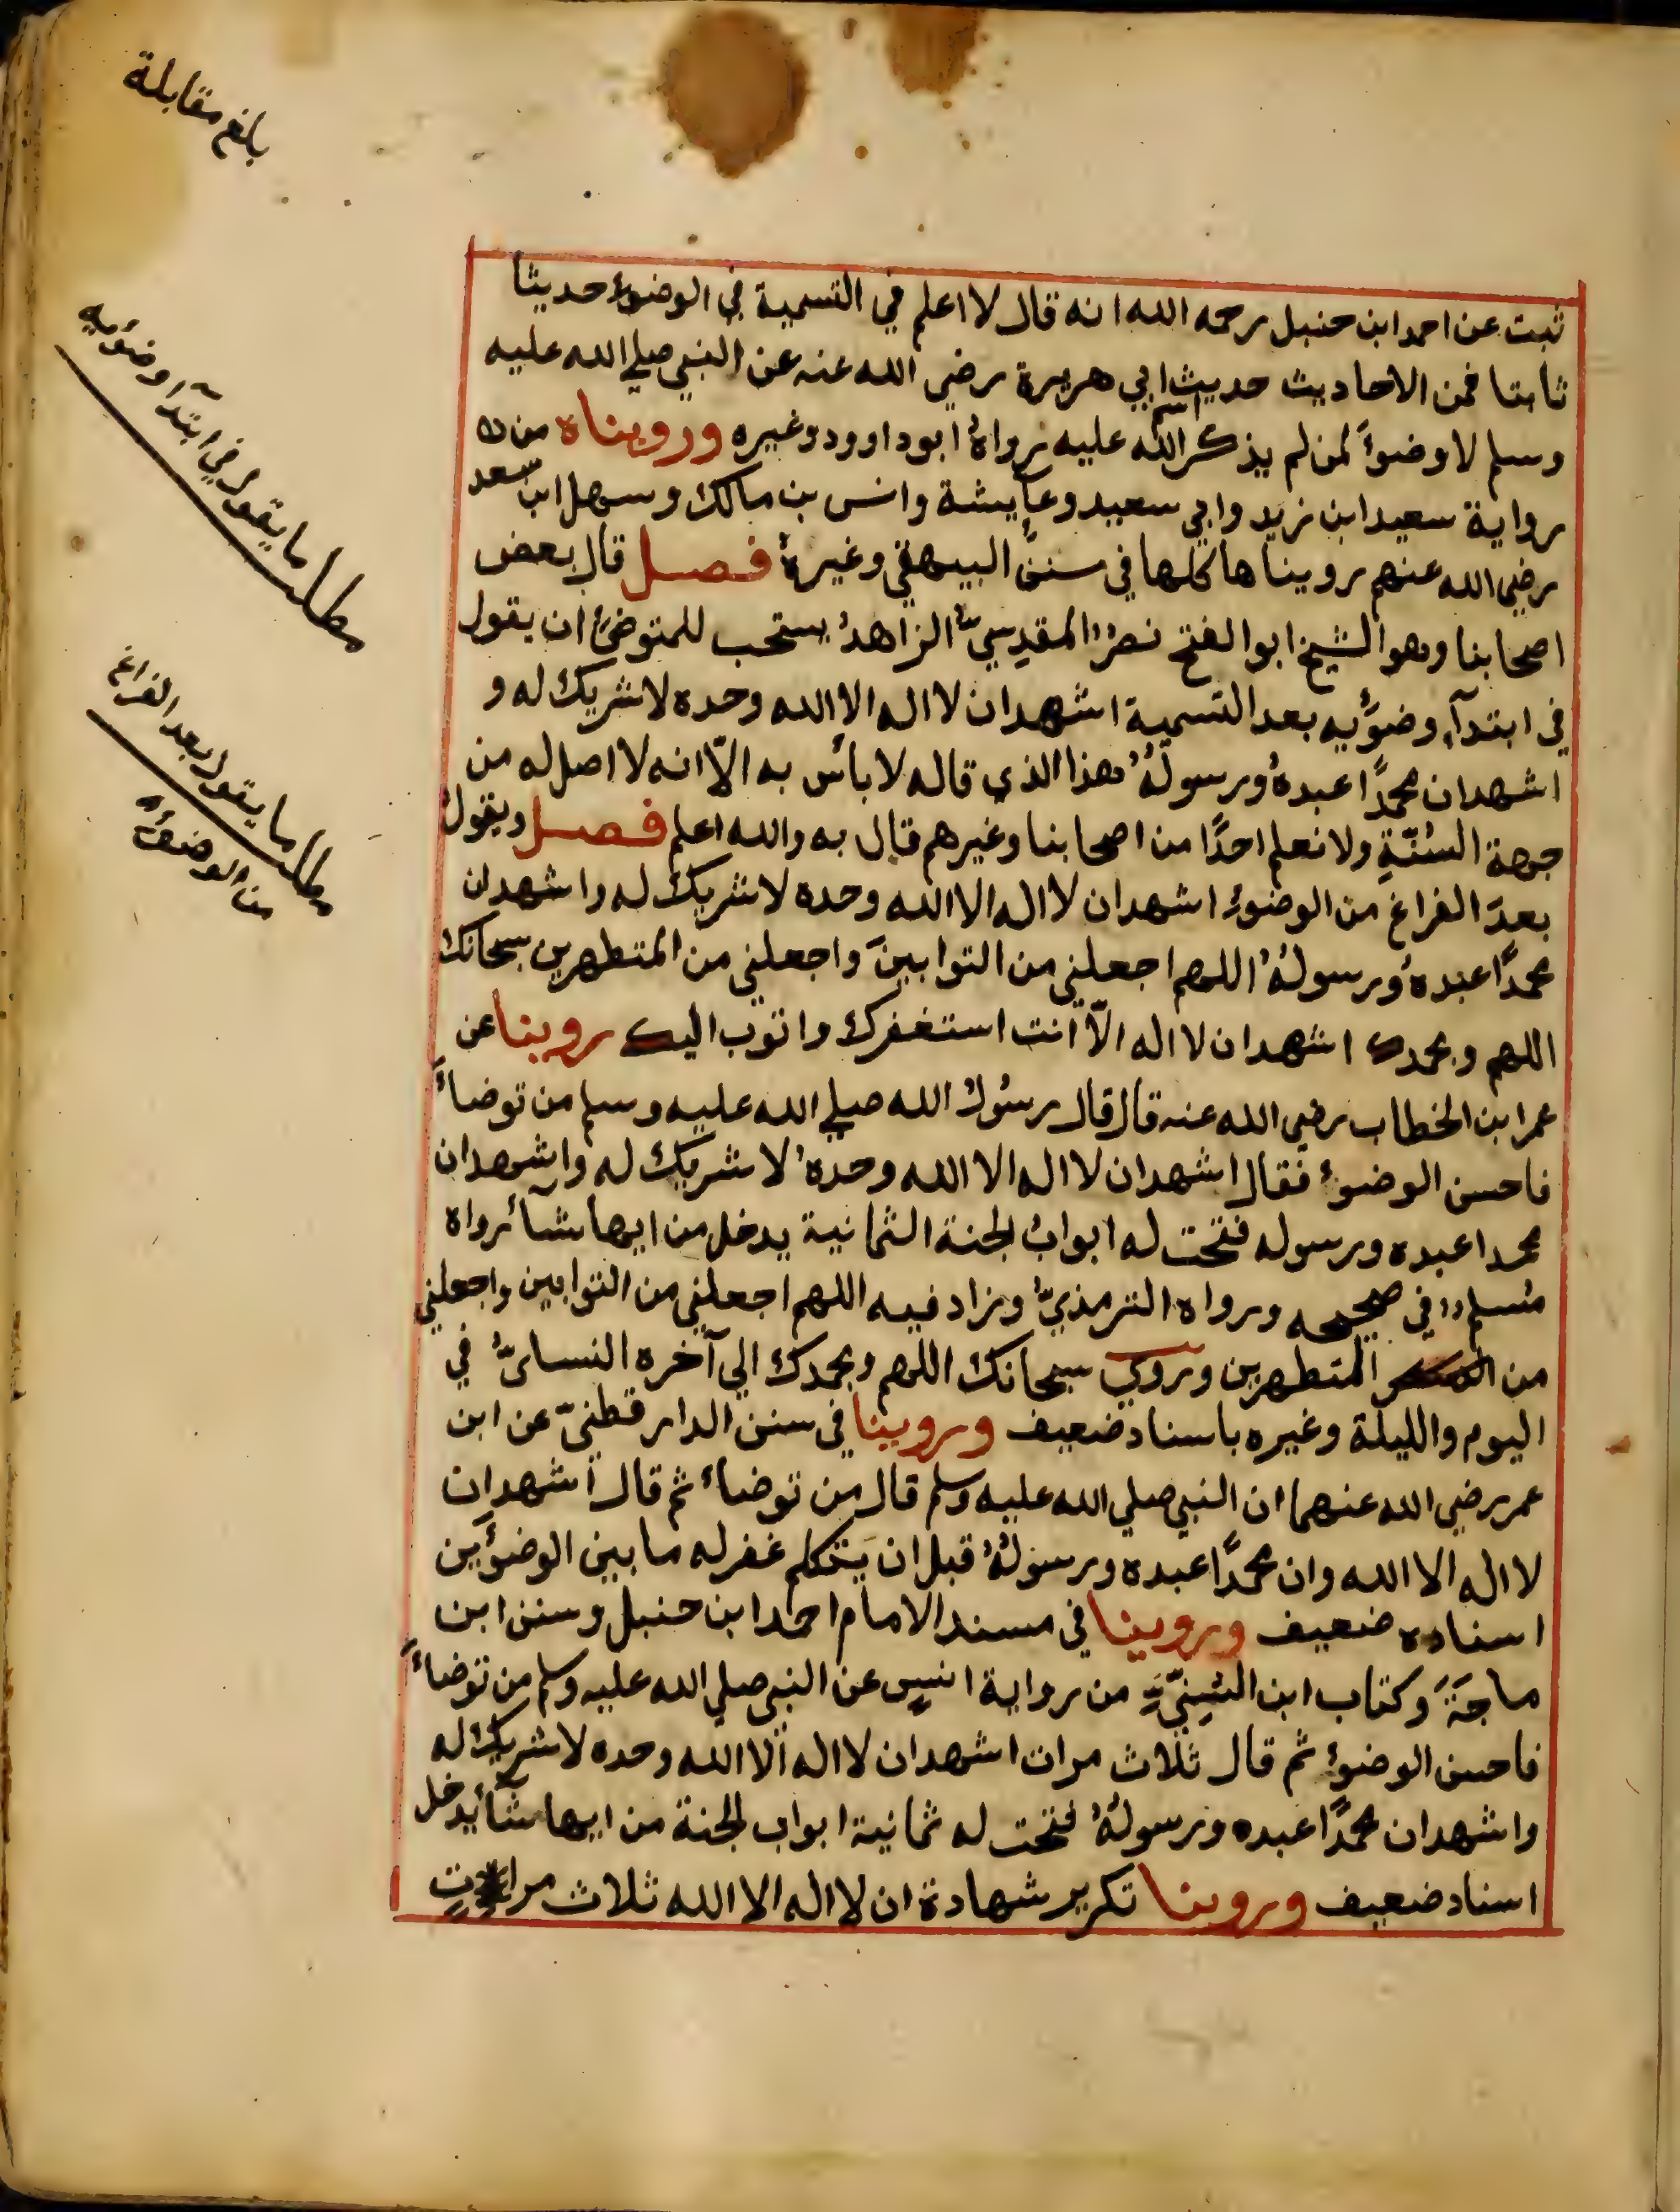 بلغ مقابلة
ثبت عن احمد ابن حنبل رحمه الله انه قال لا اعلم في التسمية في الوضوء حديثا
ثابتا فمن الاحاديث حديث ابي هريرة رضي الله عنه عن النبي صلي الله عليه
وسلم لا وضوءَ لمن لم يذكر اسم الله عليه رواهُ ابوداوود وغيره ورويناه من
رواية سعيد ابن زيد وابي سعيد وعايشة وانس بن مالك وسهل ابن سعد
رضي الله عنهم رويناها كلها في سنن البيهقي وغيرهُ فصل قال بعض
اصحابنا وهو الشيخ ابو الفتح نصرٌ المقدِسيّ الزاهدُ يستحب للمتوضئ ان يقول
في ابتدآء وضوُيه بعد التسمية اشهد ان لا اله الا الله وحده لا شريك له و
اشهد ان محمدًا عبدهُ ورسولُهُ هذا الذي قاله لا بأس به الاّ انه لا اصل له من
جهة السُنّةِ ولا نعلم احدًا من اصحابنا وغيرهم قال به والله اعلم فصل ويقول
بعدَ الفراغ من الوضوءِ اشهد ان لا اله الا الله وحده لا شريك له واشهد ان
محمدًا عبدهُ ورسولهُ اللهم اجعلني من التوابينَ واجعلني من المتطهرين سبحانك
اللهم وبحمدك اشهد ان لا اله الاّ انت استغفرك واتوب اليك روينا عن
عمر ابن الخطاب رضي الله عنه قال قال رسُولُ الله صلي الله عليه وسلم من توضاءَ
فاحسن الوضوءَ فقال اشهد ان لا اله الا الله وحدهُ لا شريك له واشهد ان
محمدا عبده ورسوله فتحت له ابوابُ الجنة الثمانية يدخل من ايها شآء رواه
مُسلمٌ في صحيحه ورواه الترمذيّ وزاد فيه اللهم اجعلني من التوابين واجعلني
من المتطهرين وروي سبحانك اللهم وبحمدك الي آخره النسائيّ في
اليوم والليلة وغيره باسناد ضعيف وروينا في سنن الدارقطنيّ عن ابن
عمر رضي الله عنهما ان النبي صلي الله عليه وسلم قال من توضاءَ ثم قال اشهد ان
لا اله الا الله وان محمدًا عبده ورسولهُ قبل ان يَتكلم غفر له ما بين الوضوءَين
اسناده ضعيف وروينا في مسند الامام احمد ابن حنبل وسنن ابن
ماجَةَ وكتاب ابن السُنِيّ من رواية انسٍ عن النبي صلي الله عليه وسلم من توضاءَ
فاحسن الوضوءِ ثم قال ثلاث مرات اشهد ان لا اله الا الله وحده لا شريك له
واشهد ان محمدًا عبده ورسولهُ فتحت له ثمانية ابواب الجنة من ايها شآء يدخل
اسناد ضعيف وروينا تكرير شهادة ان لا اله الا الله ثلاث مراتٍ
مطلب ما يقول في ابتدآء وضوُيه
مطلب ما يقول بعد الفراغ
من الوضوء